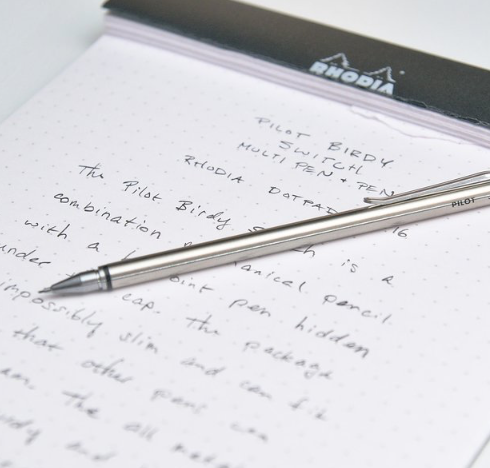 RHODIA
PILOT BIRDY
SWITCH
MULTI PEN + PEN
RHODIA DOTPAD 16
The Pilot Birdy is a
combination pencil
with a pen hidden
under cap. The package
impossibly slim and can fit
that other pens
The all
and
PILOT